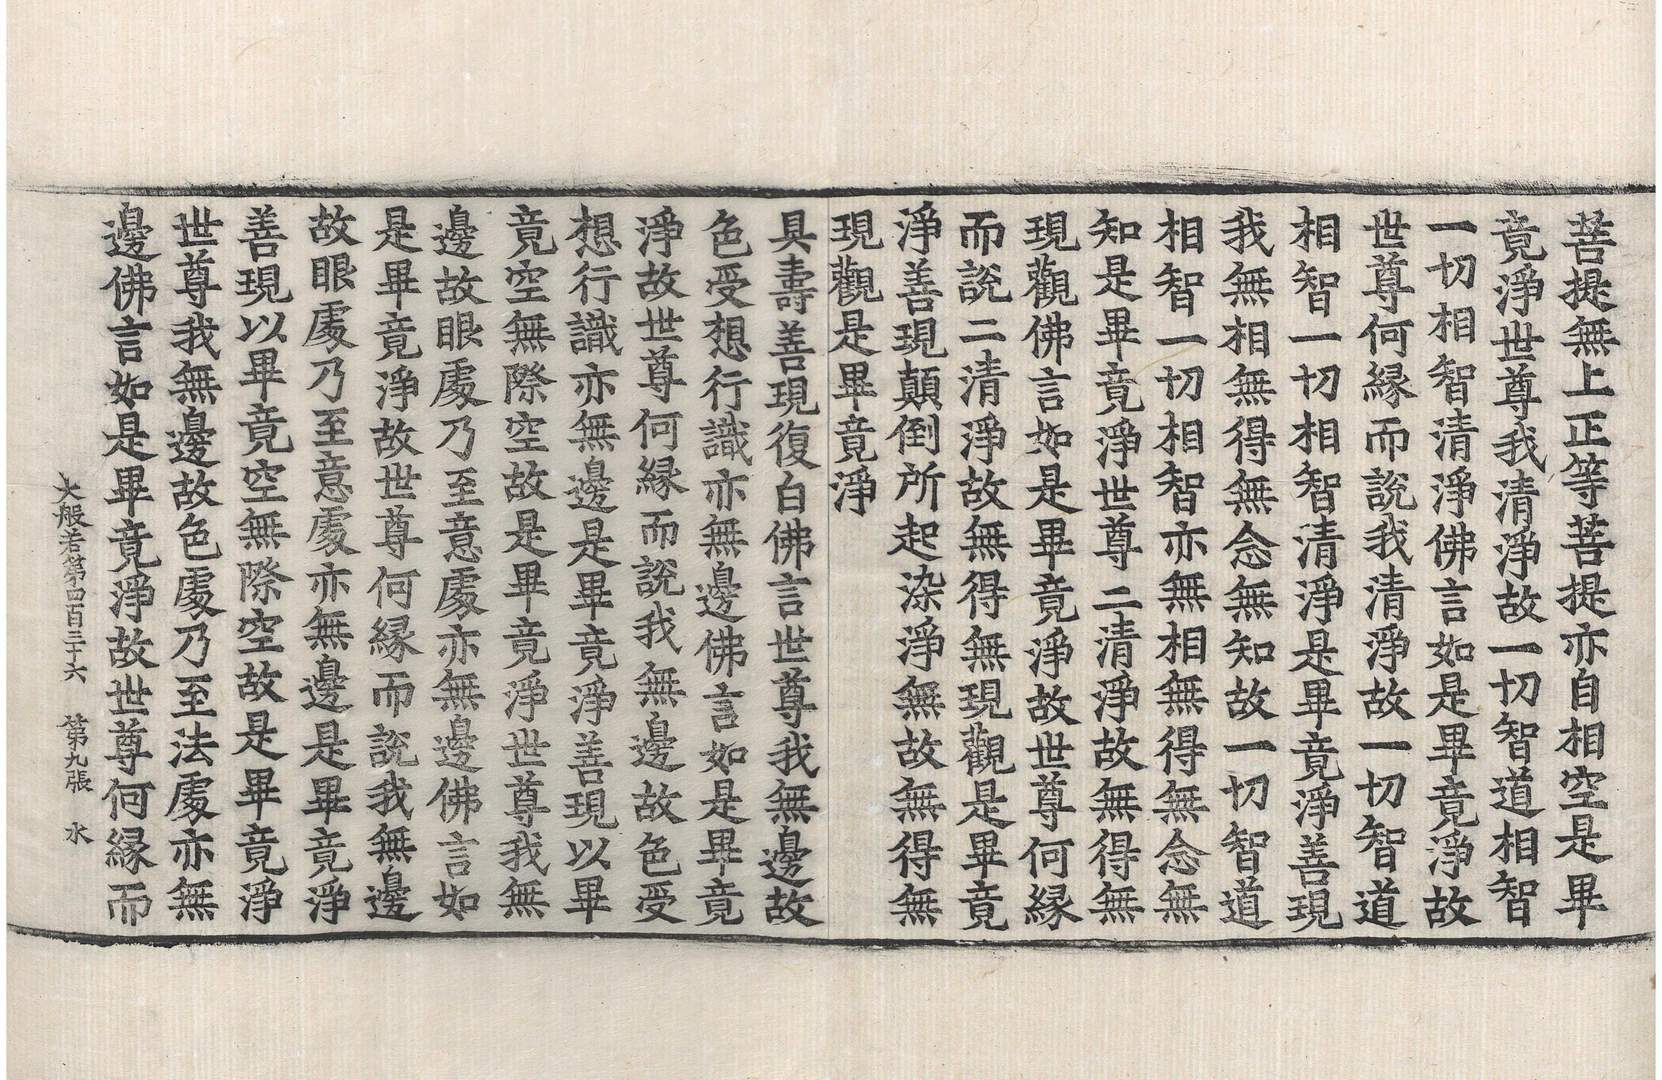 菩提無上正等菩提亦自相空是畢
竟淨世尊我清淨故一切智道相智
一切相智清淨佛言如是畢竟淨故
世尊何縁而說我清淨故一切智道
相智一切相智清淨是畢竟淨善現
我無相無得無念無知故一切智道
相智一切相智亦無相無得無念無
知是畢竟淨世尊二清淨故無得無
現觀佛言如是畢竟淨故世尊何縁
而說二清淨故無得無現觀是畢竟
淨善現顛倒所起染淨無故無得無
現觀是畢竟淨
具壽善現復白佛言世尊我無邊故
色受想行識亦無邊佛言如是畢竟
淨故世尊何縁而說我無邊故色受
想行識亦無邊是畢竟淨善現以畢
竟空無際空故是畢竟淨世尊我無
邊故眼處乃至意處亦無邊佛言如
是畢竟淨故世尊何縁而說我無邊
故眼處乃至意處亦無邊是畢竟淨
善現以畢竟空無際空故是畢竟淨
世尊我無邊故色處乃至法處亦無
邊佛言如是畢竟淨故世尊何縁而
大般若第四百三十六 第九張 水